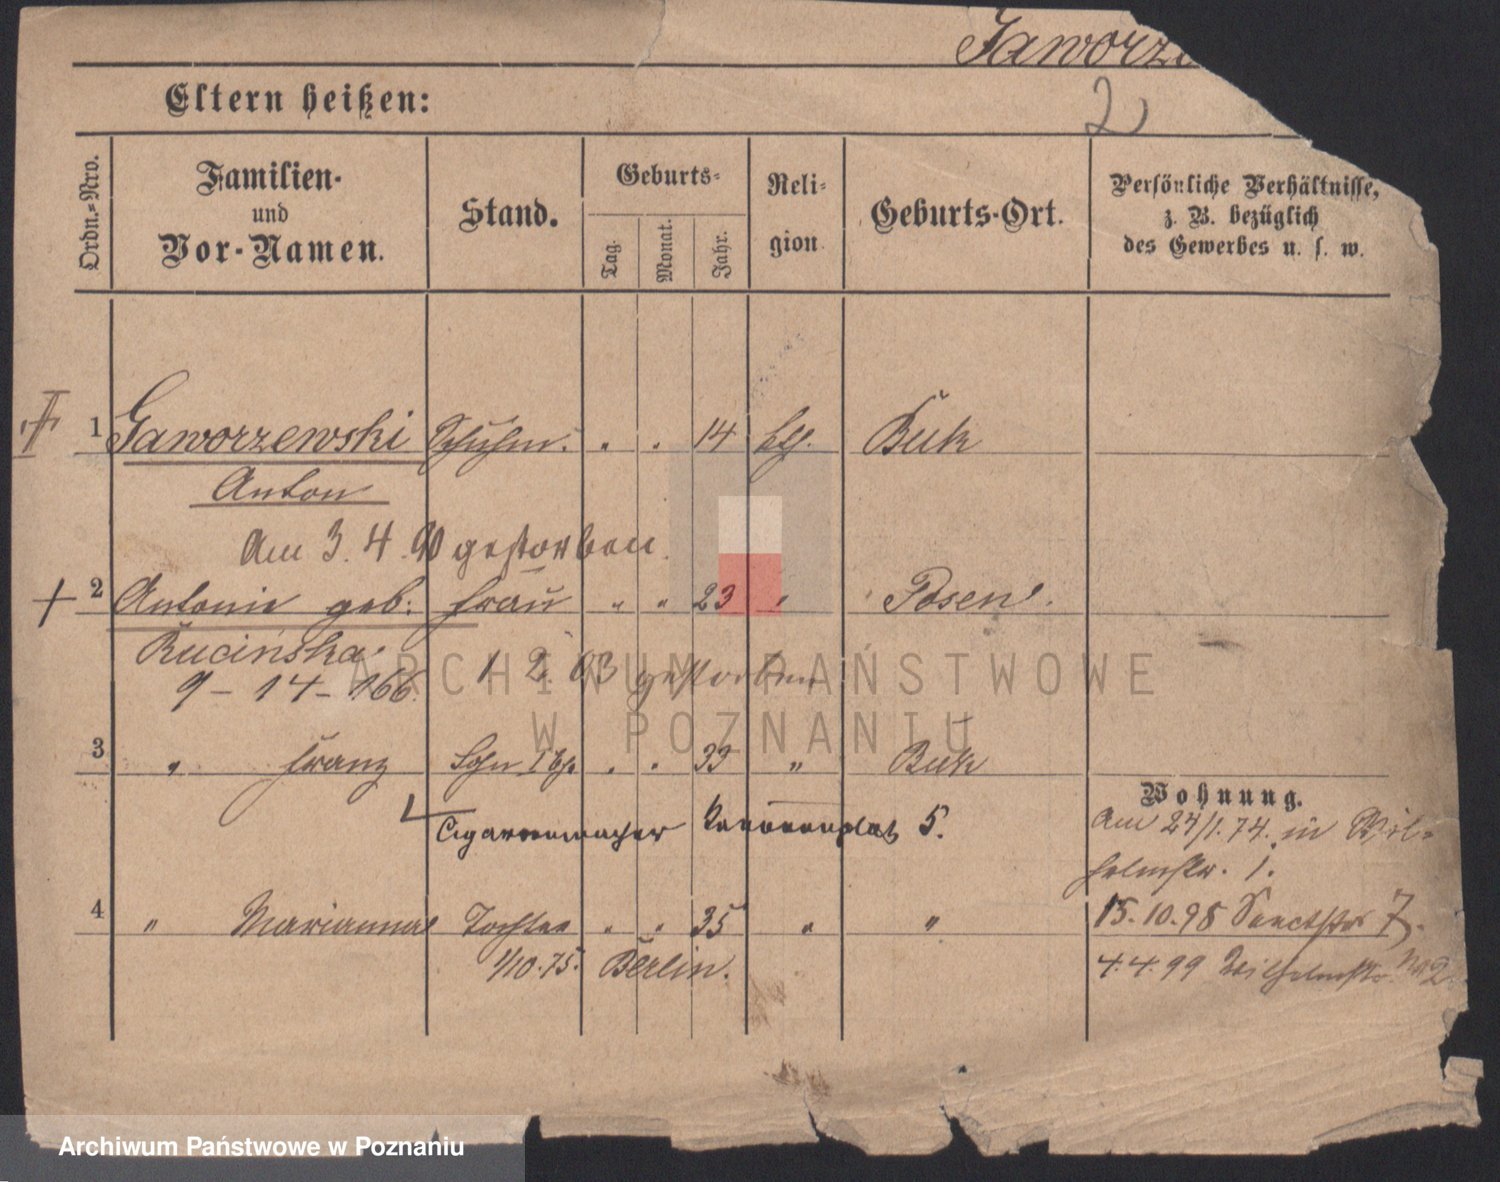 Jaworze
2
Eltern heißen:
Ordn.=Nro.
Familien-
und
Vor-Namen.
Stand.
Geburts-
Tag.
Monat.
Jahr.
Reli-
gion
Geburts-Ort.
Persönliche Verhältnisse,
z. B. bezüglich
des Gewerbes u. s. w.
1 Jaworzewski Schuhm. " " 14 kth. Buk
Anton
Am 3. 4. 90 gestorben.
2 Antonie geb. Frau " " 23 " Posen.
Rucińska
9 - 14 - 166.
1 2. 03 gestorben
3 " Franz Sohn " " 33 " Buk
Cigarrenmacher 5.
Wohnung.
Am 27/1. 74. in Wil-
helmstr. 1.
4 " Marianna Tochter " " 35 " "
15. 10. 98 7.
1/10. 75. Berlin.
4. 4. 99 Wilhelmstr. No 2
ARCHIWUM PAŃSTWOWE
W POZNANIU
Archiwum Państwowe w Poznaniu